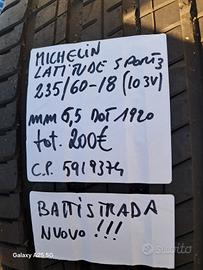 MICHELIN
LATITUDE SPORT3
235/60-18 (103V)
mm 6,5 DOT 1920
tot. 200€
C.P. 5919374
BATTISTRADA
NUOVO !!!
Galaxy A25 5G
subito